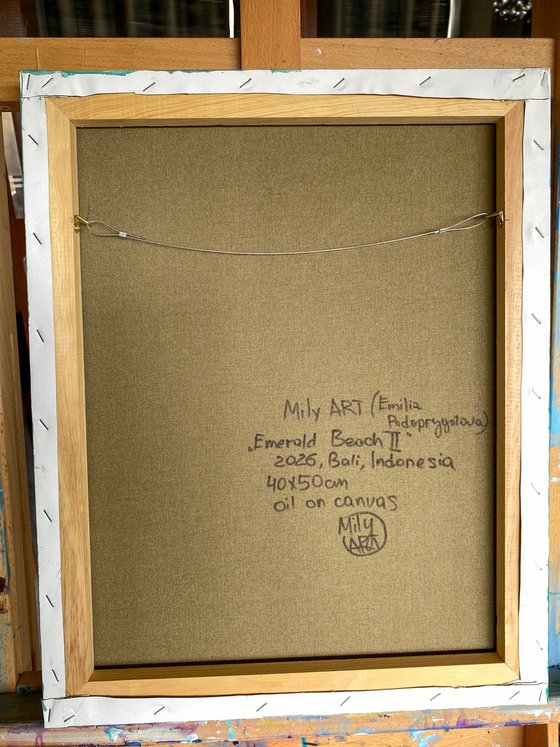 Mily ART (Emilia
Podoprygolova)
„Emerald Beach II"
2026, Bali, Indonesia
40x50cm
oil on canvas
Mily
ART